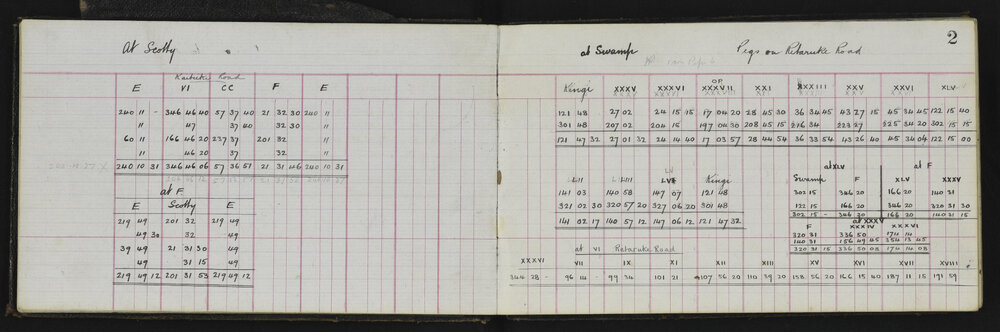 At Scotty
Raituke Road
E VI CC F E
240 11 - 346 46 40 57 37 40 21 32 30 240 11
" 47 37 40 32 30 "
60 11 166 46 20 237 37 201 32 "
" 46 20 37 32 "
240 10 31 346 46 06 57 36 51 21 31 46 240 10 31
at F
E Scotty E
219 49 201 32 219 49
49 30 32 49
39 49 21 31 30 49
49 31 15 49
219 49 12 201 31 53 219 49 12
2
at Swamp Pegs on Retaruke Road
OP
Kingi XXXV XXXVI XXXVII XXI XXXIII XXV XXVI XLV
121 48 27 02 24 15 15 17 04 20 28 45 30 36 34 45 43 27 15 45 34 45 122 15 40
301 48 207 02 204 15 197 04 30 208 45 15 216 34 223 27 225 34 20 302 15 15
121 47 32 27 01 32 24 14 40 17 03 57 28 44 54 36 33 54 43 26 40 45 34 04 122 15 00
at XLV at F
LII LIII LVI Kingi Swamp F XLV XXXV
141 03 140 58 147 07 121 48 302 15 346 20 166 20 140 31
321 02 30 320 57 20 327 06 20 301 48 122 15 166 20 346 20 320 31 30
302 15 - 346 20 166 20 140 31 15
141 02 17 140 57 12 147 06 12 121 47 32
at XXXV
F XXXIV XXXVI
320 31 336 50 174 14
140 31 156 49 45 354 13 45
320 31 15 336 50 08 174 14 08
at VI Retaruke Road
XXXVI VII IX XI XII XIII XV XVI XVII XVIII
344 28 - 96 14 - 99 34 101 21 107 56 20 110 39 20 158 56 20 166 15 40 187 11 15 191 59